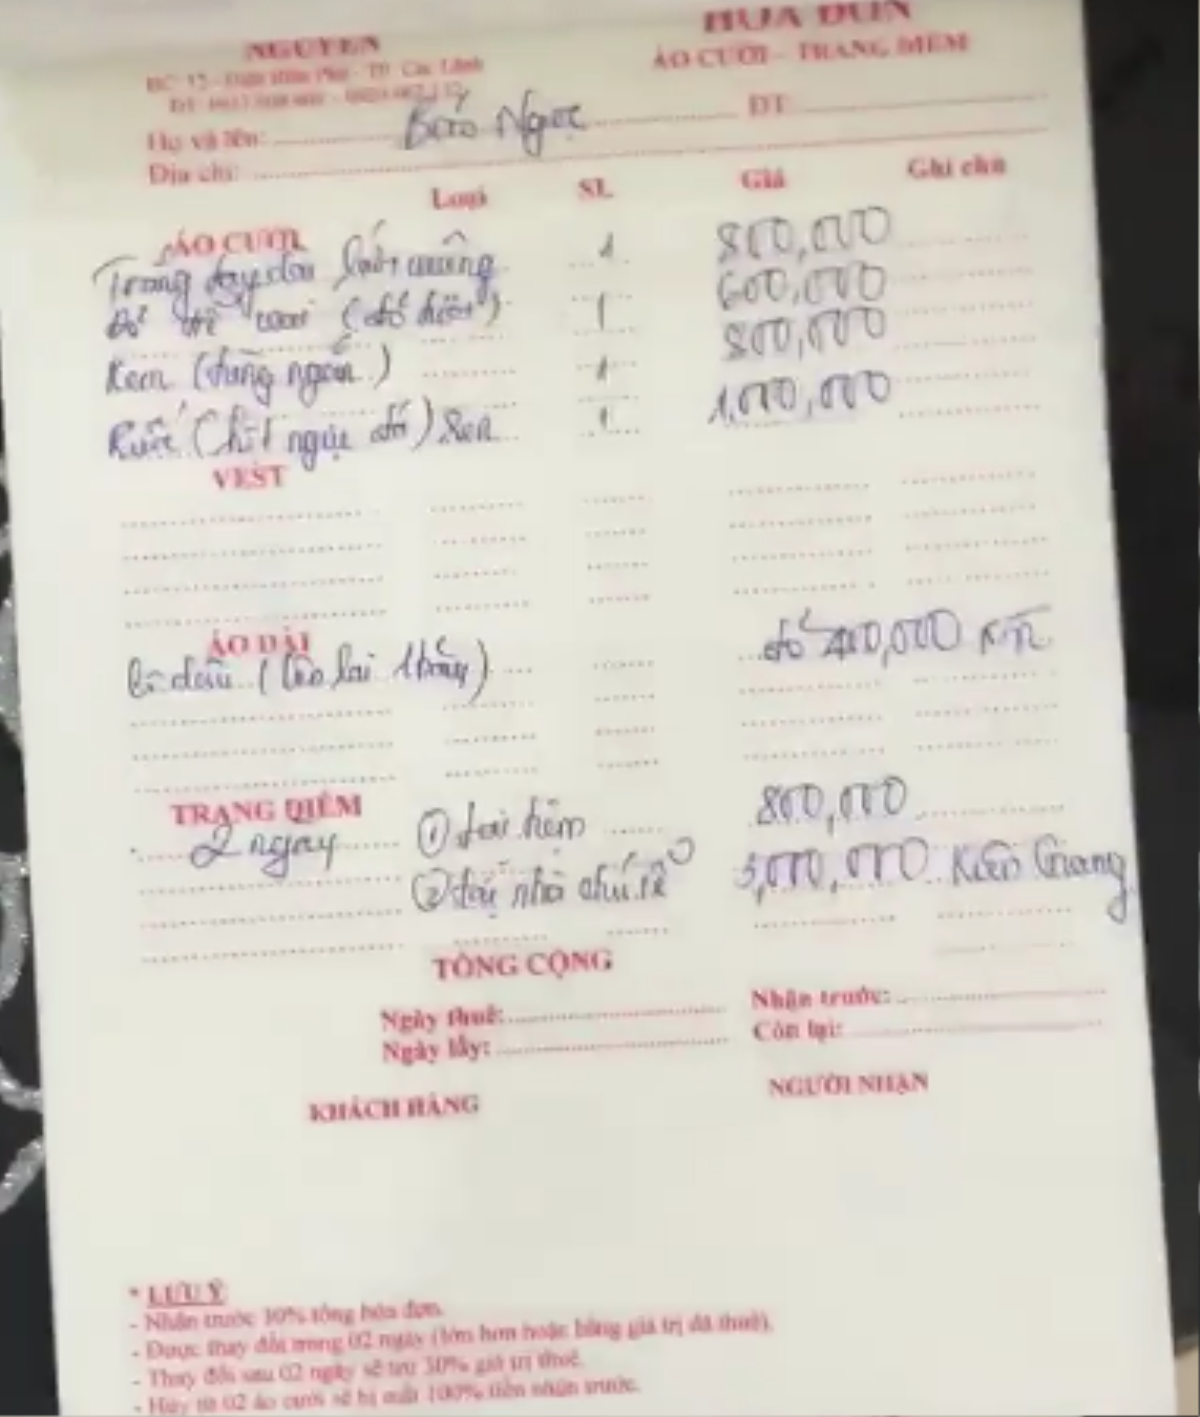 NGUYEN
HÓA ĐƠN
ÁO CƯỚI - TRANG ĐIỂM
ĐC: 12 - Điện Biên Phủ - TP. Cao Lãnh
Họ và tên: Bảo Ngọc ĐT:
Địa chỉ:
Loại SL Giá Ghi chú
ÁO CƯỚI
Trắng tay dài 1 800,000
vai ( ) 1 600,000
Kem ( ngắn) 1 800,000
(hột ngực đỏ) Ren 1 1,000,000
VEST
ÁO DÀI
Cô dâu ( lai ) đỏ 400,000
TRANG ĐIỂM
2 ngày ① tại tiệm 800,000
② tại nhà chú rể 3,000,000 Kiên Giang
TỔNG CỘNG
Ngày thuê: Nhận trước:
Ngày lấy: Còn lại:
KHÁCH HÀNG NGƯỜI NHẬN
* LƯU Ý
- Nhận trước 30% tổng hóa đơn.
- Được thay đổi trong 02 ngày (lớn hơn hoặc bằng giá trị đã thuê).
- Thay đổi sau 02 ngày sẽ trừ 30% giá trị thuê.
- Hủy từ 02 áo cưới sẽ bị mất 100% tiền nhận trước.